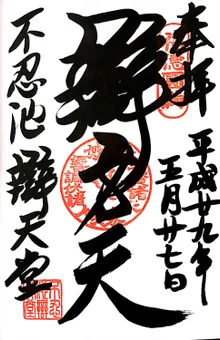 奉拝
平成廿九年
五月廿七日
辯才天
不忍池
辯天堂